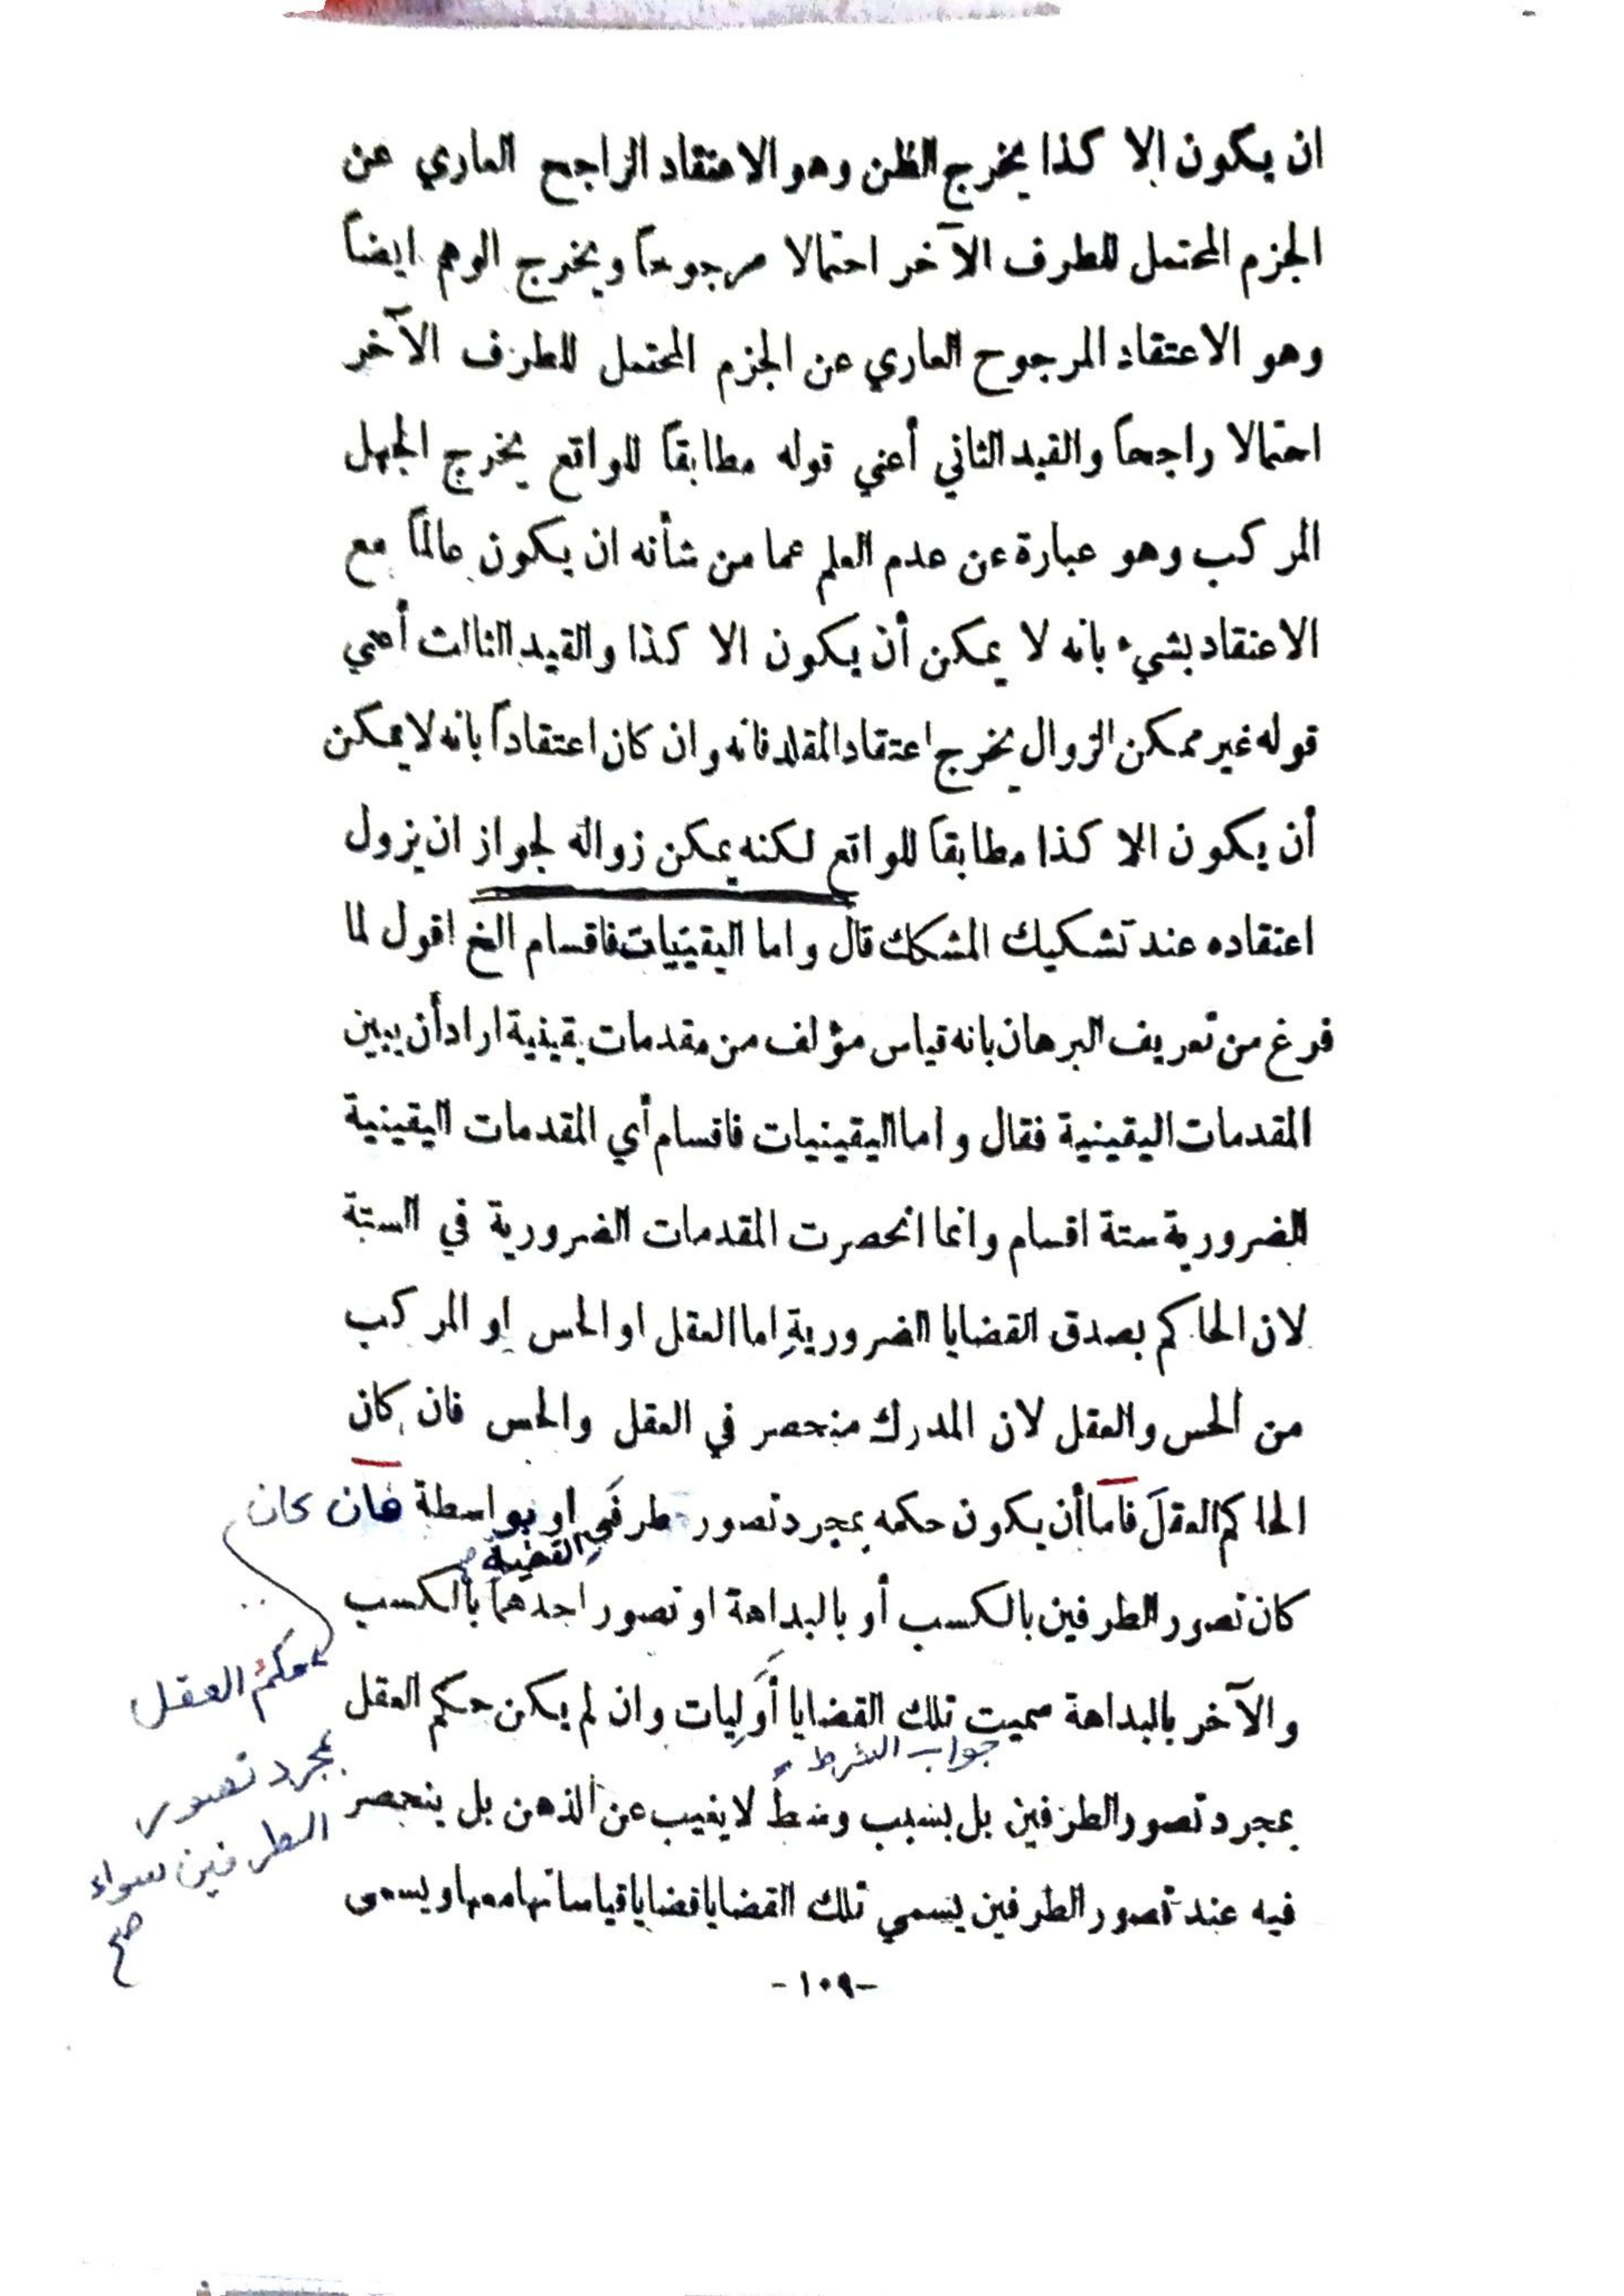 ان يكون إلا كذا يخرج الظن وهو الاعتقاد الراجح العاري عن
الجزم المحتمل للطرف الآخر احتمالا مرجوحاً ويخرج الوهم ايضاً
وهو الاعتقاد المرجوح العاري عن الجزم المحتمل للطرف الآخر
احتمالا راجحاً والقيد الثاني أعني قوله مطابقاً للواقع يخرج الجهل
المركب وهو عبارة عن عدم العلم عما من شأنه ان يكون عالماً مع
الاعتقاد بشيء بانه لا يمكن أن يكون الا كذا والقيد الثالث أعني
قوله غير ممكن الزوال يخرج اعتقاد المقلد فانه وان كان اعتقاداً بانه لا يمكن
أن يكون الا كذا مطابقاً للواقع لكنه يمكن زواله لجواز ان يزول
اعتقاده عند تشكيك المشكك قال واما اليقينيات فاقسام الخ اقول لما
فرغ من تعريف البرهان بانه قياس مؤلف من مقدمات يقينية اراد أن يبين
المقدمات اليقينية فقال واما اليقينيات فاقسام أي المقدمات اليقينية
الضرورية ستة اقسام وانما انحصرت المقدمات الضرورية في الستة
لان الحاكم بصدق القضايا الضرورية اما العقل او الحس او المركب
من الحس والعقل لان المدرك منحصر في العقل والحس فان كان
الحاكم العقل فاما أن يكون حكمه بمجرد تصور طرفي او بواسطة فان كان
القضية
كان تصور الطرفين بالكسب أو بالبداهة او تصور احدهما بالكسب
حكم العقل
والآخر بالبداهة سميت تلك القضايا أوليات وان لم يكن حكم العقل
جواب الشرط
بمجرد تصور
بمجرد تصور الطرفين بل بسبب وسط لا يغيب عن الذهن بل ينحصر
الطرفين سواء
فيه عند تصور الطرفين يسمي تلك القضايا قضايا قياساتها معها ويسمى
صح
-١٠٩-